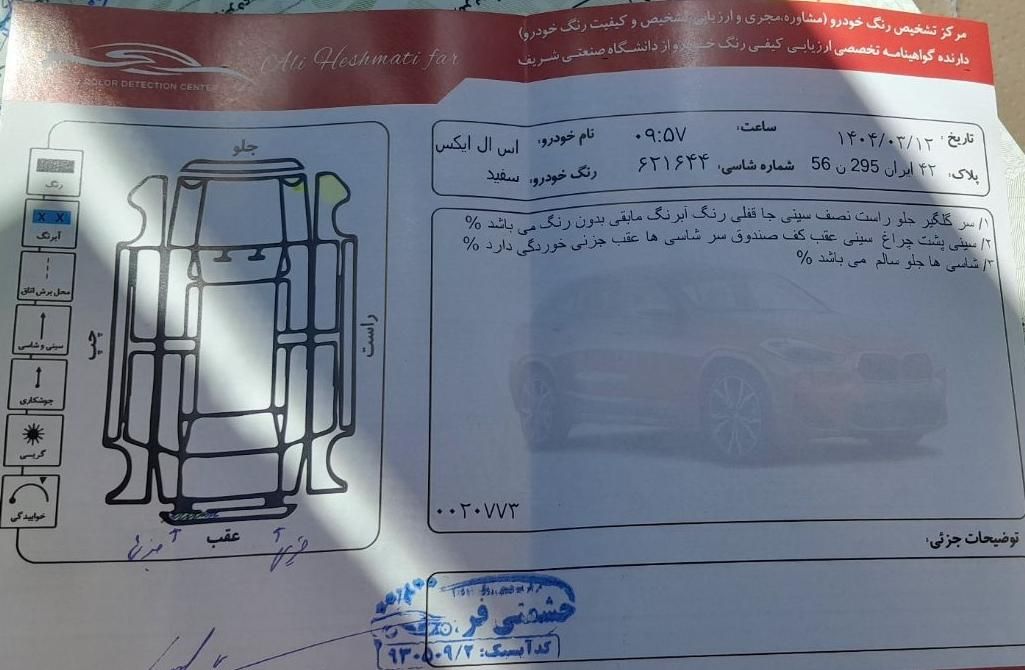 مرکز تشخیص رنگ خودرو (مشاوره،مجری و ارزیابی تشخیص و کیفیت رنگ خودرو)
دارنده گواهینامه تخصصی ارزیابی کیفی رنگ خودرو از دانشگاه صنعتی شریف
Ali Heshmati far
COLOR DETECTION CENTER
تاریخ: ۱۴۰۴/۰۳/۱۲ ساعت: ۰۹:۵۷ نام خودرو: اس ال ایکس
پلاک: ۴۲ ایران 295 ن 56 شماره شاسی: ۶۲۱۶۴۴ رنگ خودرو: سفید
۱/ سر گلگیر جلو راست نصف سینی جا قفلی رنگ آبرنگ مابقی بدون رنگ می باشد %
۲/ سینی پشت چراغ سینی عقب کف صندوق سر شاسی ها عقب جزئی خوردگی دارد %
۳/ شاسی ها جلو سالم می باشد %
۰۰۲۰۷۷۳
توضیحات جزئی:
جلو
راست
چپ
عقب
جزئی
رنگ
X X
آبرنگ
محل برش اتاق
سینی و شاسی
جوشکاری
گریسی
خوابیدگی
حشمتی فر
کد آبسیک: ۹۳۰۵۰۹/۲